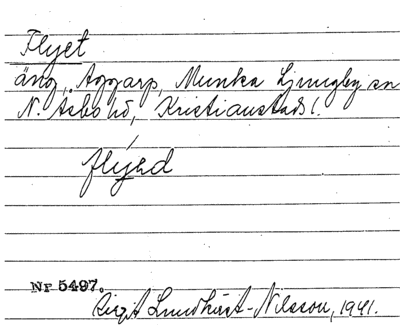 Flyet
äng, Apparp, Munka Ljungby sn
N. Åsbo hd, Kristianstads l.
flýəd
Nr 5497.
Birgit Lundkvist-Nilsson, 1941.